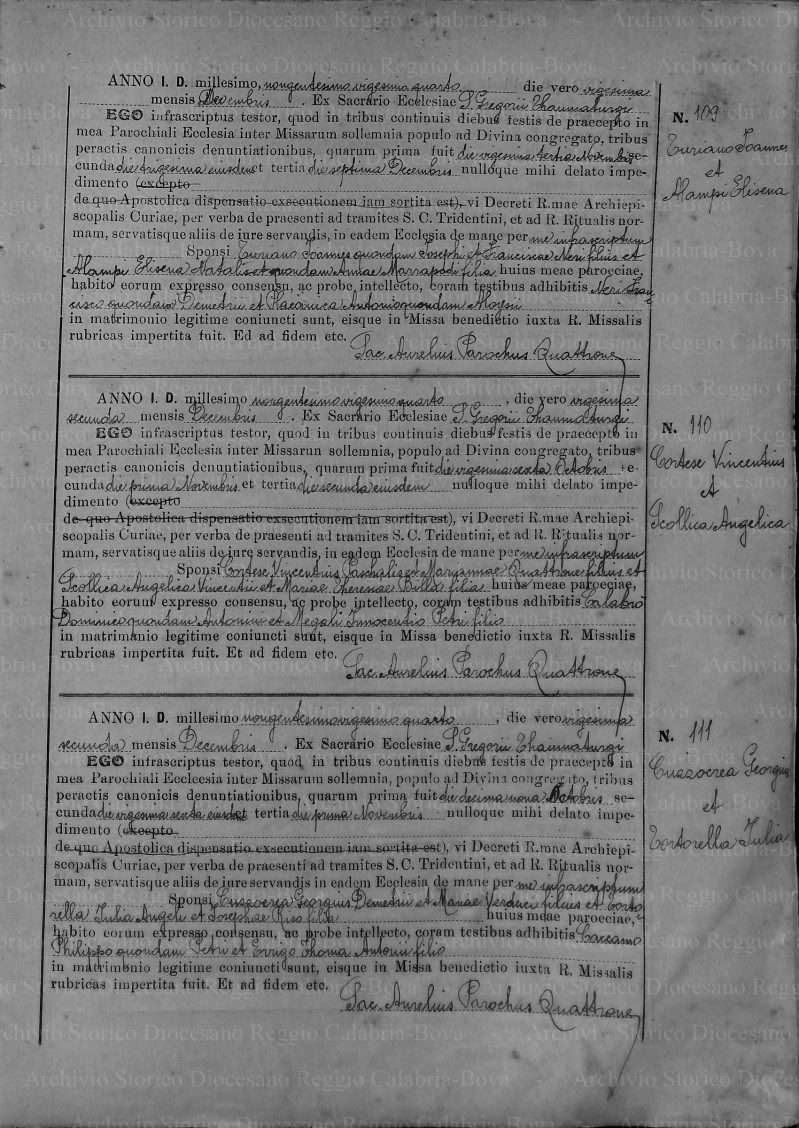 ANNO I. D. millesimo, nongentesimo vigesimo quarto, die vero vigesima
mensis Decembris. Ex Sacrario Ecclesiae S. Gregorii Thaumaturgi
EGO infrascriptus testor, quod in tribus continuis diebus festis de praecepto in
mea Parochiali Ecclesia inter Missarum sollemnia populo ad Divina congregato, tribus
peractis canonicis denuntiationibus, quarum prima fuit die vigesima tertia Novembris se-
cunda die trigesima eiusdem et tertia die septima Decembris nulloque mihi delato impe-
dimento (excepto
de quo Apostolica dispensatio exsecutionem iam sortita est), vi Decreti R.mae Archiepi-
scopalis Curiae, per verba de praesenti ad tramites S. C. Tridentini, et ad R. Ritualis nor-
mam, servatisque aliis de iure servandis, in eadem Ecclesia de mane per me infrascriptum
Sponsi Turiano Ioannes quondam Iosephi et Franciscae Neri filius et
Alampi Elisena Natalis et quondam Annae Marrapodi filia huius meae paroeciae,
habito eorum expresso consensu, ac probe intellecto, coram testibus adhibitis Neri Fran
cisco quondam Demetrii et Placanica Antonio quondam Aloysii
in matrimonio legitime coniuncti sunt, eisque in Missa benedictio iuxta R. Missalis
rubricas impertita fuit. Ed ad fidem etc.
Sac. Aurelius Parochus Quattrone
N. 109
Turiano Ioannes
et
Alampi Elisena
ANNO I. D. millesimo nongentesimo vigesimo quarto, die vero vigesima
secunda mensis Decembris. Ex Sacrario Ecclesiae S. Gregorii Thaumaturgi
EGO infrascriptus testor, quod in tribus continuis diebus festis de praecepto in
mea Parochiali Ecclesia inter Missarun sollemnia, populo ad Divina congregato, tribus
peractis canonicis denuntiationibus, quarum prima fuit die vigesima sexta Octobris se-
cunda die prima Novembris et tertia die secunda eiusdem nulloque mihi delato impe-
dimento (excepto
de quo Apostolica dispensatio exsecutionem iam sortita est), vi Decreti R.mae Archiepi-
scopalis Curiae, per verba de praesenti ad tramites S. C. Tridentini, et ad R. Ritualis nor-
mam, servatisque aliis de jure servandis, in eadem Ecclesia de mane per me infrascriptum
Sponsi Cortese Vincentius Paschalis et Mariannae Quattrone filius et
Scollica Angelica Vincentii et Mariae Theresiae Billa filia huius meae paroeciae,
habito eorum expresso consensu, ac probe intellecto, coram testibus adhibitis Calabrò
Dominico quondam Antonini et Megali Innocentio Petri filio
in matrimonio legitime coniuncti sunt, eisque in Missa benedictio iuxta R. Missalis
rubricas impertita fuit. Et ad fidem etc.
Sac. Aurelius Parochus Quattrone
N. 110
Cortese Vincentius
et
Scollica Angelica
ANNO I. D. millesimo nongentesimo vigesimo quarto, die vero vigesima
secunda mensis Decembris. Ex Sacrario Ecclesiae S. Gregorii Thaumaturgi
EGO infrascriptus testor, quod in tribus continuis diebus festis de praecepto in
mea Parochiali Ecclcesia inter Missarum sollemnia, populo ad Divina congregato, tribus
peractis canonicis denuntiationibus, quarum prima fuit die decima nona Octobris se-
cunda die vigesima sexta eiusdem et tertia die prima Novembris nulloque mihi delato impe-
dimento (excepto
de quo Apostolica dispensatio exsecutionem iam sortita est), vi Decreti R.mae Archiepi-
scopalis Curiae, per verba de praesenti ad tramites S. C. Tridentini, et ad R. Ritualis nor-
mam, servatisque aliis de iure servandis in eadem Ecclesia de mane per me infrascriptum
Sponsi Cuzzocrea Georgius Demetrii et Mariae Verduci filius et Torto
rella Iulia Angeli et Iosephae Riso filia huius meae paroeciae,
habito eorum expresso consensu, ac probe intellecto, coram testibus adhibitis Caccamo
Philippo quondam Petri et Errigo Thoma Antonii filio
in matrimonio legitime coniuncti sunt, eisque in Missa benedictio iuxta R. Missalis
rubricas impertita fuit. Et ad fidem etc.
Sac. Aurelius Parochus Quattrone
N. 111
Cuzzocrea Georgius
et
Tortorella Iulia
Archivio Storico Diocesano Reggio Calabria-Bova